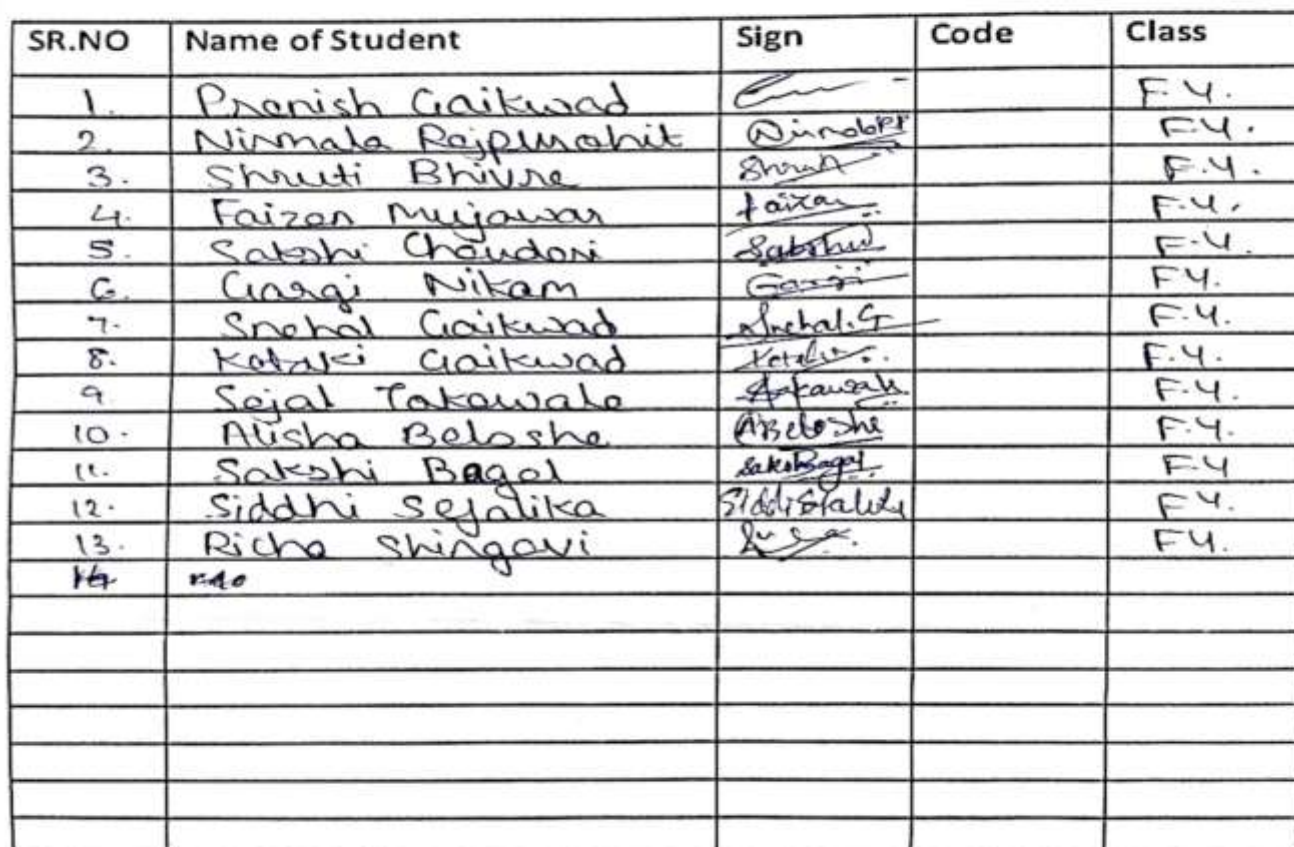 SR.NO Name of Student Sign Code Class
1. Pranish Gaikwad F.Y.
2. Nirmala Rajpurohit F.Y.
3. Shruti Bhivre Shruti F.Y.
4. Faizan Mujawar faizan F.Y.
5. Sakshi Choudari F.Y.
6. Gargi Nikam Gargi F.Y.
7. Snehal Gaikwad Snehal.G F.Y.
8. Kataki Gaikwad F.Y.
9. Sejal Takawale F.Y.
10. Alisha Beloshe ABeloshe F.Y.
11. Sakshi Bagal SakshiBagal F.Y
12. Siddhi Sejalika F.Y.
13. Richa Shingavi F.Y.